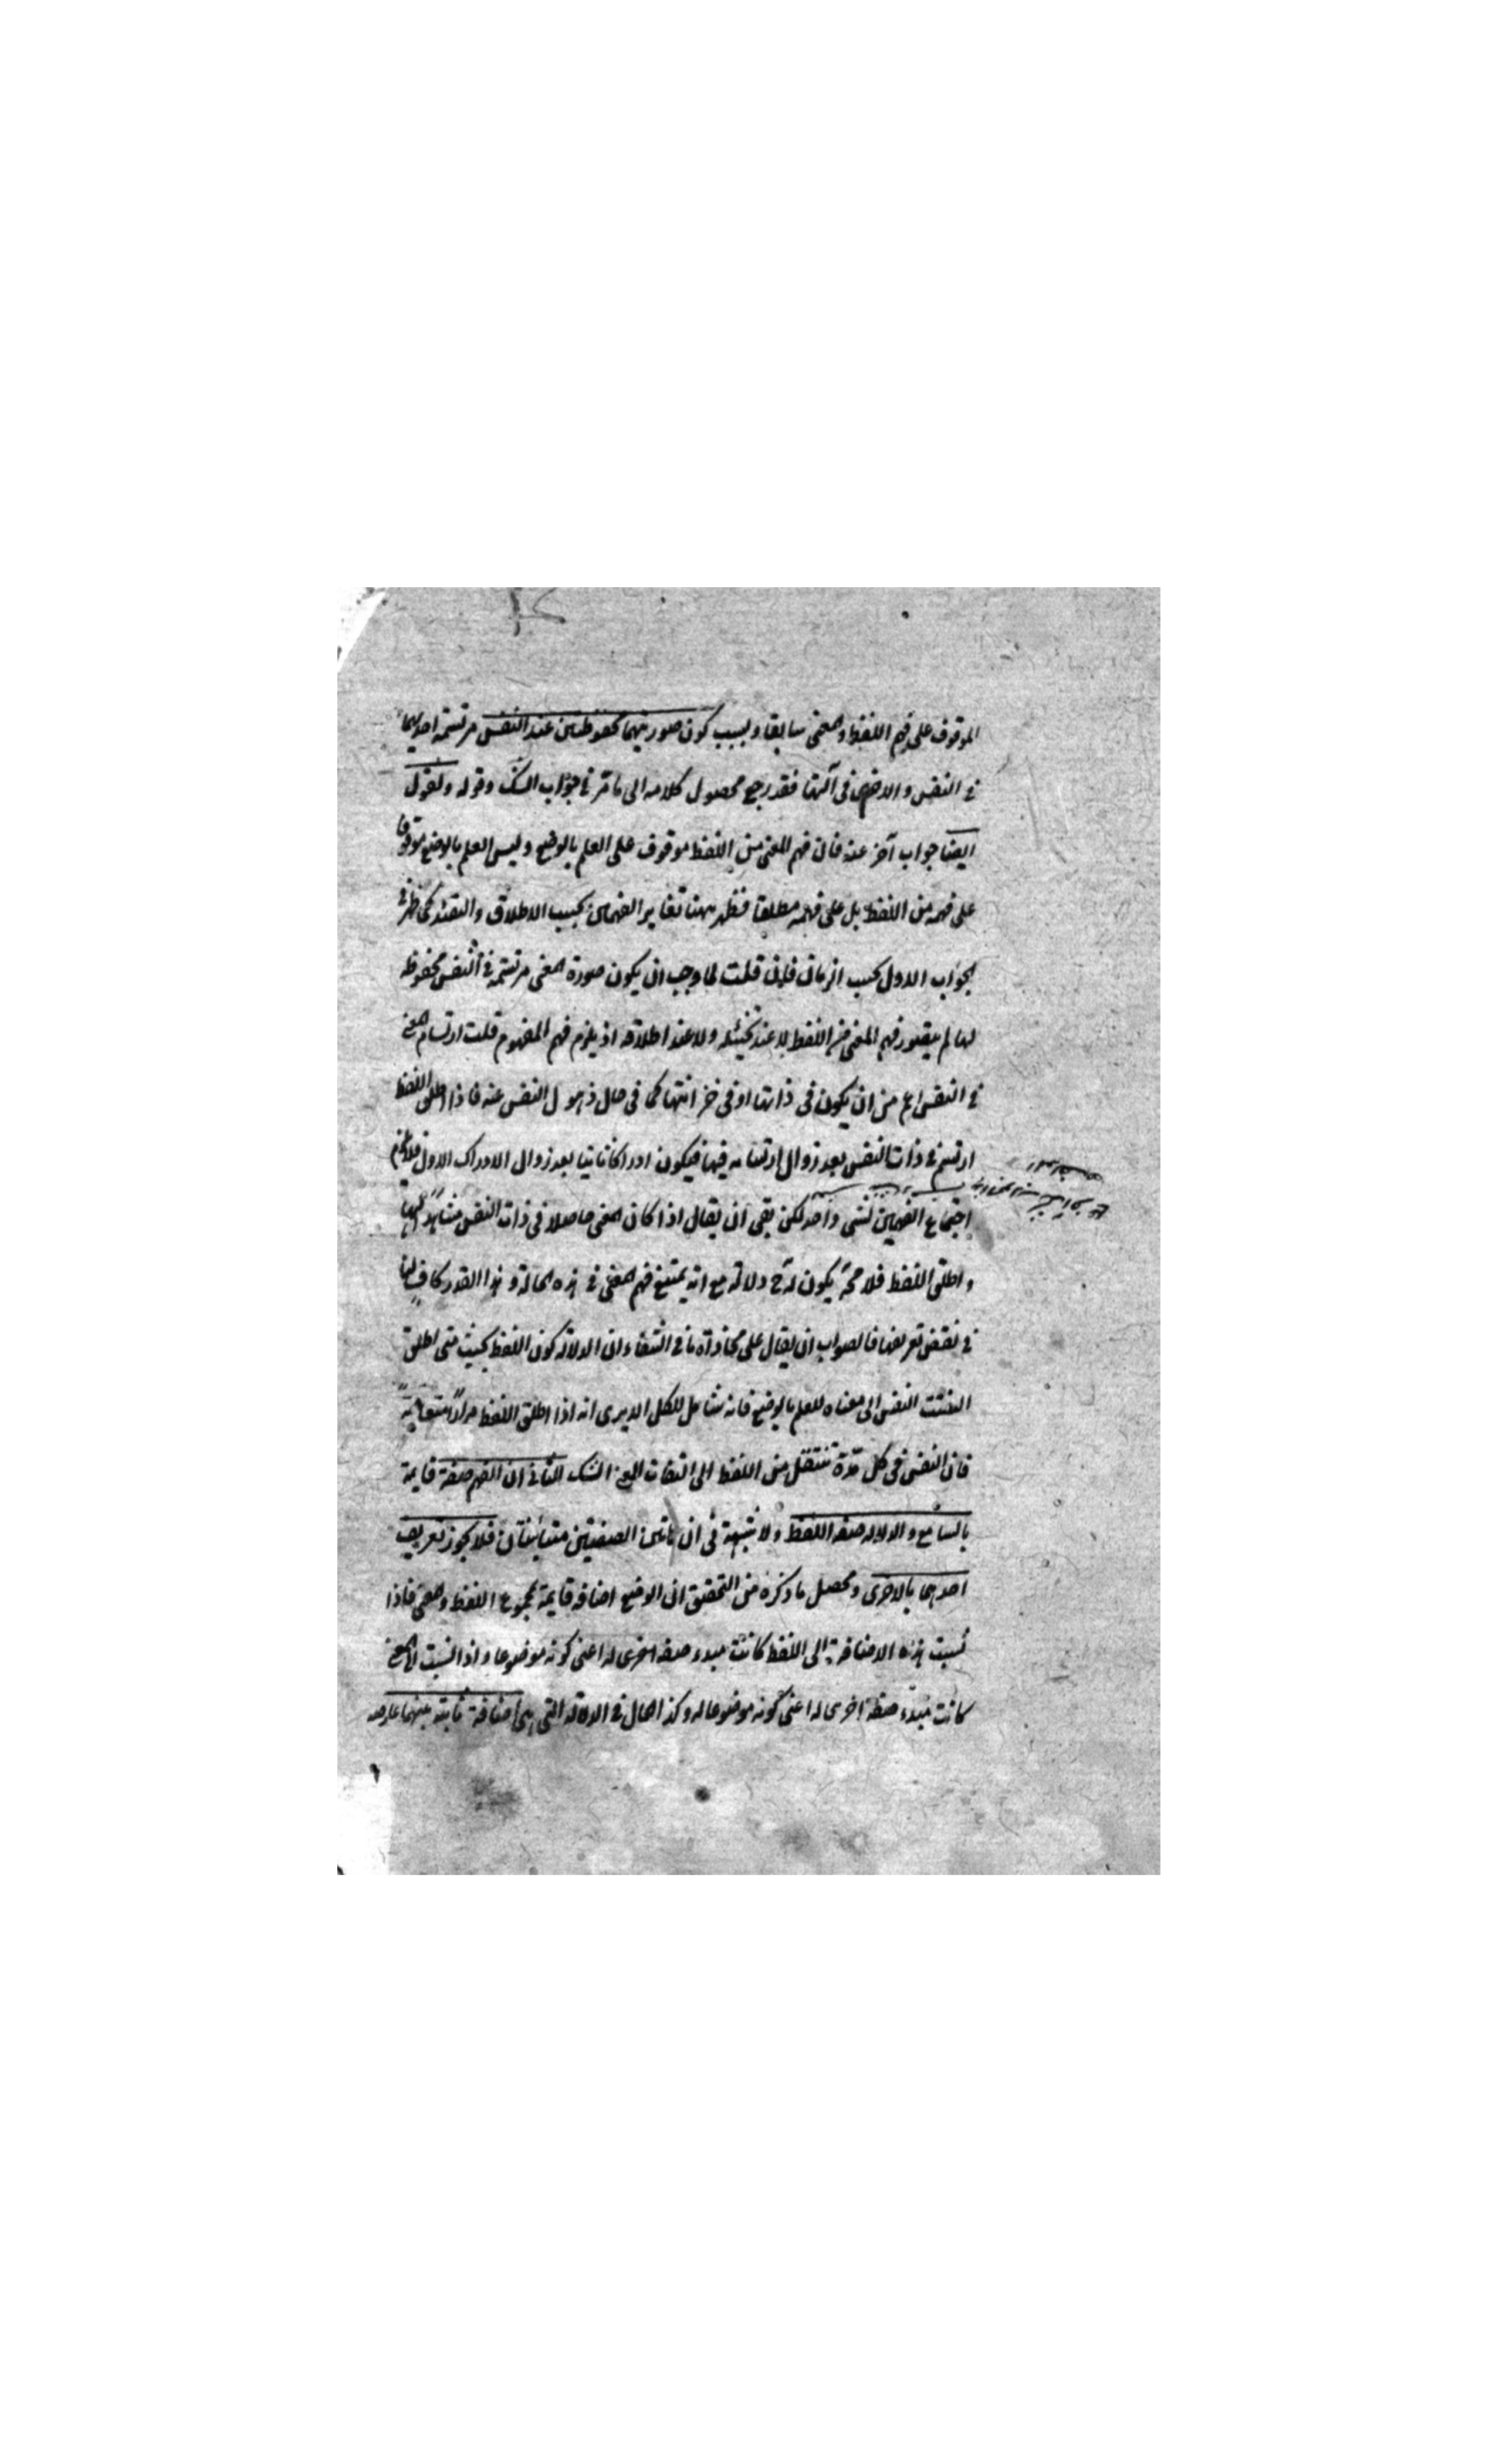 الموقوف على فهم اللفظ والمعنى سابقا وبسبب كون صورتيهما محفوظتين عند النفس مرتسمة احديهما
في النفس والاخرى في آلتها فقد رجع محصول كلامه الى ما مرّ في جواب الشك وقوله ولقول
ايضا جواب آخر عنه فان فهم المعنى من اللفظ موقوف على العلم بالوضع وليس العلم بالوضع موقوفا
على فهمه من اللفظ بل على فهمه مطلقا فظهر ههنا تغاير الفهمين بحسب الاطلاق والتقييد كما ظهر في
الجواب الاول بحسب الزمان فان قلت لما وجب ان يكون صورة المعنى مرتسمة في النفس محفوظة
لها لم يتصور فهم المعنى من اللفظ لا عند تخيله ولا عند اطلاقه اذ يلزم فهم المفهوم قلت ارتسام المعنى
في النفس اعم من ان يكون في ذاتها او في خزانتها كما في حال ذهول النفس عنه فاذا اطلق اللفظ
ارتسم في ذات النفس بعد زوال ارتسامه فيها فيكون ادراكا ثانيا بعد زوال الادراك الاول فلا يلزم
اجتماع الفهمين لشئ واحد لكن بقى ان يقال اذا كان المعنى حاصلا في ذات النفس مشاهدا لها
واطلق اللفظ فلا محة يكون له ح دلالة مع انه يمتنع فهم المعنى في هذه الحالة وهذا القدر كاف لنا
في نقض تعريفها فالصواب ان يقال على محاذاة ما في الشفاء ان الدلالة كون اللفظ بحيث متى اطلق
التفتت النفس الى معناه للعلم بالوضع فانه شامل للكل الا يرى انه اذا اطلق اللفظ مرارًا متعاقبة
فان النفس في كل مرّة تنتقل من اللفظ الى التفات المعنى الشك الثاني ان الفهم صفة قايمة
بالسامع والدلالة صفة اللفظ ولا شبهة في ان هاتين الصفتين متباينتان فلا يجوز تعريف
احديهما بالاخرى ومحصل ما ذكره من التحقيق ان الوضع اضافة قايمة بمجموع اللفظ والمعنى فاذا
نسبت هذه الاضافة الى اللفظ كانت مبدء صفة اخرى له اعنى كونه موضوعا واذا نسبت الى المعنى
كانت مبدء صفة اخرى له اعنى كونه موضوعا له وكذا الحال في الدلالة التي هي اضافة ثابتة بينهما عارضة